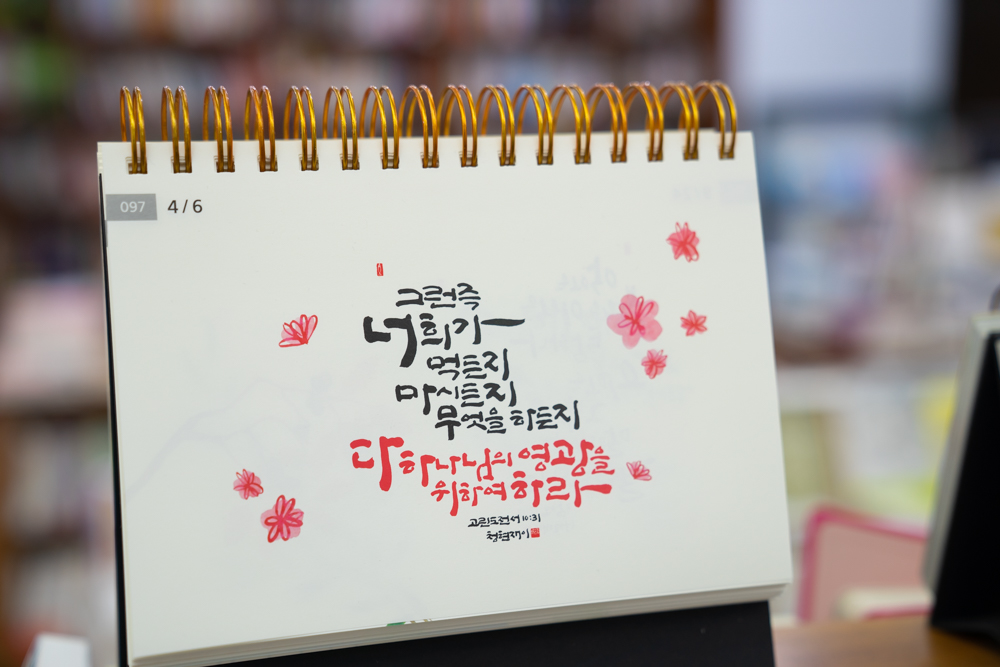 097 4/6
그런즉
너희가
먹든지
마시든지
무엇을 하든지
다 하나님의 영광을
위하여 하라
고린도전서 10:31
청현재이